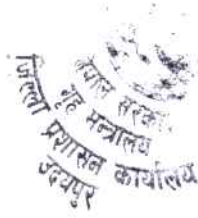 नेपाल सरकार
गृह मन्त्रालय
जिल्ला प्रशासन कार्यालय
उदयपुर